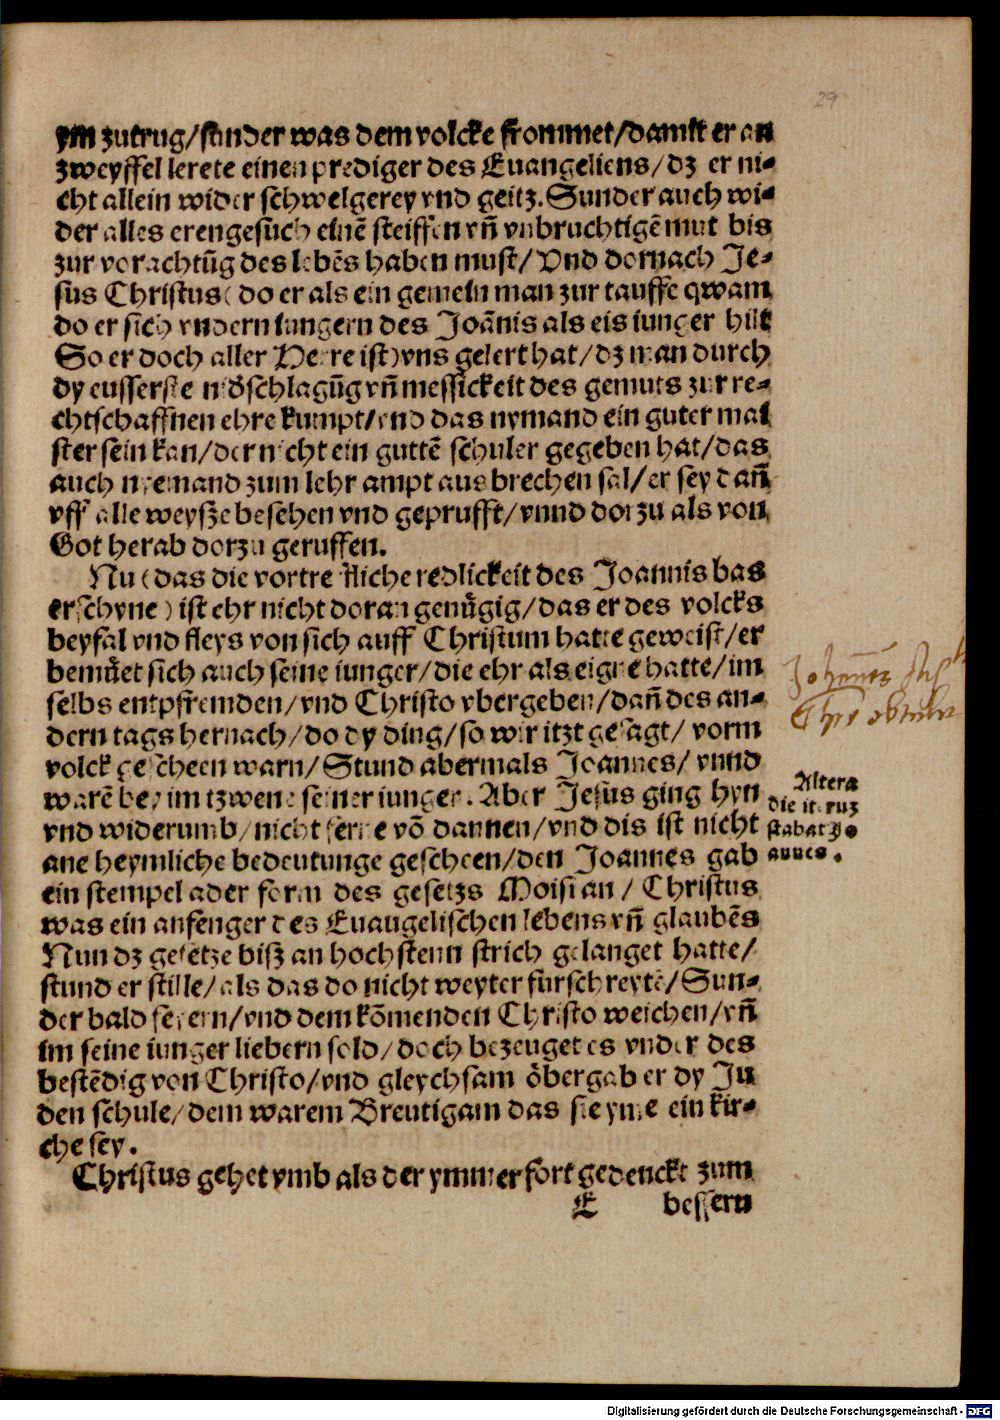 29
ym zutrug/sunder was dem volcke frommet/damit er an
zweyffel lerete einen prediger des Euangeliens/dz er ni-
cht allein wider schwelgerey vnd geitz. Sunder auch wi-
der alles erengesuch einē steiffen vn̄ vnbruchtigē mut bis
zur vorachtūg des lebēs haben must/Vnd dornach Je-
sus Christus( do er als ein gemein man zur tauffe qwam
do er sich vndern iungern des Joānis als eis iunger hilt
So er doch aller Herre ist)vns gelert hat/dz man durch
dy eusserste nid̄schlagūg vn̄ messickeit des gemuts zur re-
chtschaffnen ehre kumpt/vnd das nymand ein guter mai
ster sein kan/der nicht ein guttē schuler gegeben hat/das
auch niemand zum lehr ampt aus brechen sal/er sey dan̄
vff alle weysze besehen vnd geprufft/vnnd dorzu als von
Got herab dorzu geruffen.
Nu(das die vortreffliche redlickeit des Joannis bas
erschyne) ist ehr nicht doran genuͤgig/das er des volcks
beyfal vnd fleys von sich auff Christum hatte geweist/er
bemuͤet sich auch seine iunger/die ehr als eigne hatte/im
selbs entpfremden/vnd Christo vbergeben/dan̄ des an-
dern tags hernach/do dy ding/so wir itzt gesagt/vorm
volck gescheen warn/Stund abermals Joannes/vnnd
warē bey im tzwene seiner iunger. Aber Jesus ging hyn
vnd widerumb/nicht ferne vō dannen/vnd dis ist nicht
ane heymliche bedeutunge gescheen/den Joannes gab
ein stempel ader form des gesetzs Moisi an/Christus
was ein anfenger des Euangelischen lebens vn̄ glaubēs
Nun dz gesetze bisz an hochstenn strich gelanget hatte/
stund er stille/als das do nicht weyter furschreytē/Sun-
der bald feyern/vnd dem kōmenden Christo weichen/vn̄
im seine iunger liebern sold/doch bezeuget es vnder des
bestēdig von Christo/vnd gleychsam öbergab er dy Ju
den schule/dem warem Breutigam das sie yme ein kir-
che sey.
Christus gehet vmb als der ymmerfort gedenckt zum
E bessern
Altera
die iteruz
stabat Jo
annes.
Digitalisierung gefördert durch die Deutsche Forschungsgemeinschaft - DFG